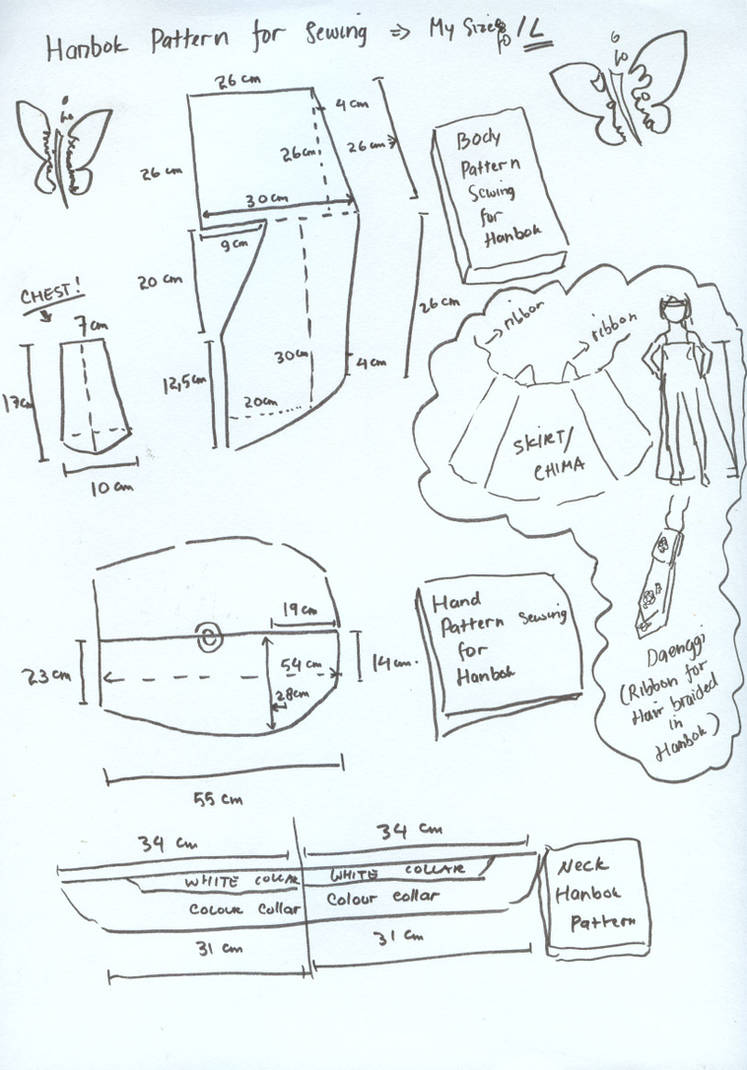 Hanbok Pattern for Sewing => My Size / L
26 cm
4 cm
26 cm
26 cm
26 cm
30 cm
9 cm
20 cm
26 cm
30 cm
4 cm
12,5 cm
20 cm
Body
Pattern
Sewing
for
Hanbok
CHEST!
7 cm
17 cm
10 cm
ribbon
ribbon
SKIRT/
CHIMA
19 cm
23 cm
54 cm
14 cm
28 cm
55 cm
Hand
Pattern Sewing
for
Hanbok
Daenggi
(Ribbon for
Hair braided
in
Hanbok)
34 cm
34 cm
WHITE COLLAR
WHITE COLLAR
Colour Collar
Colour Collar
31 cm
31 cm
Neck
Hanbok
Pattern